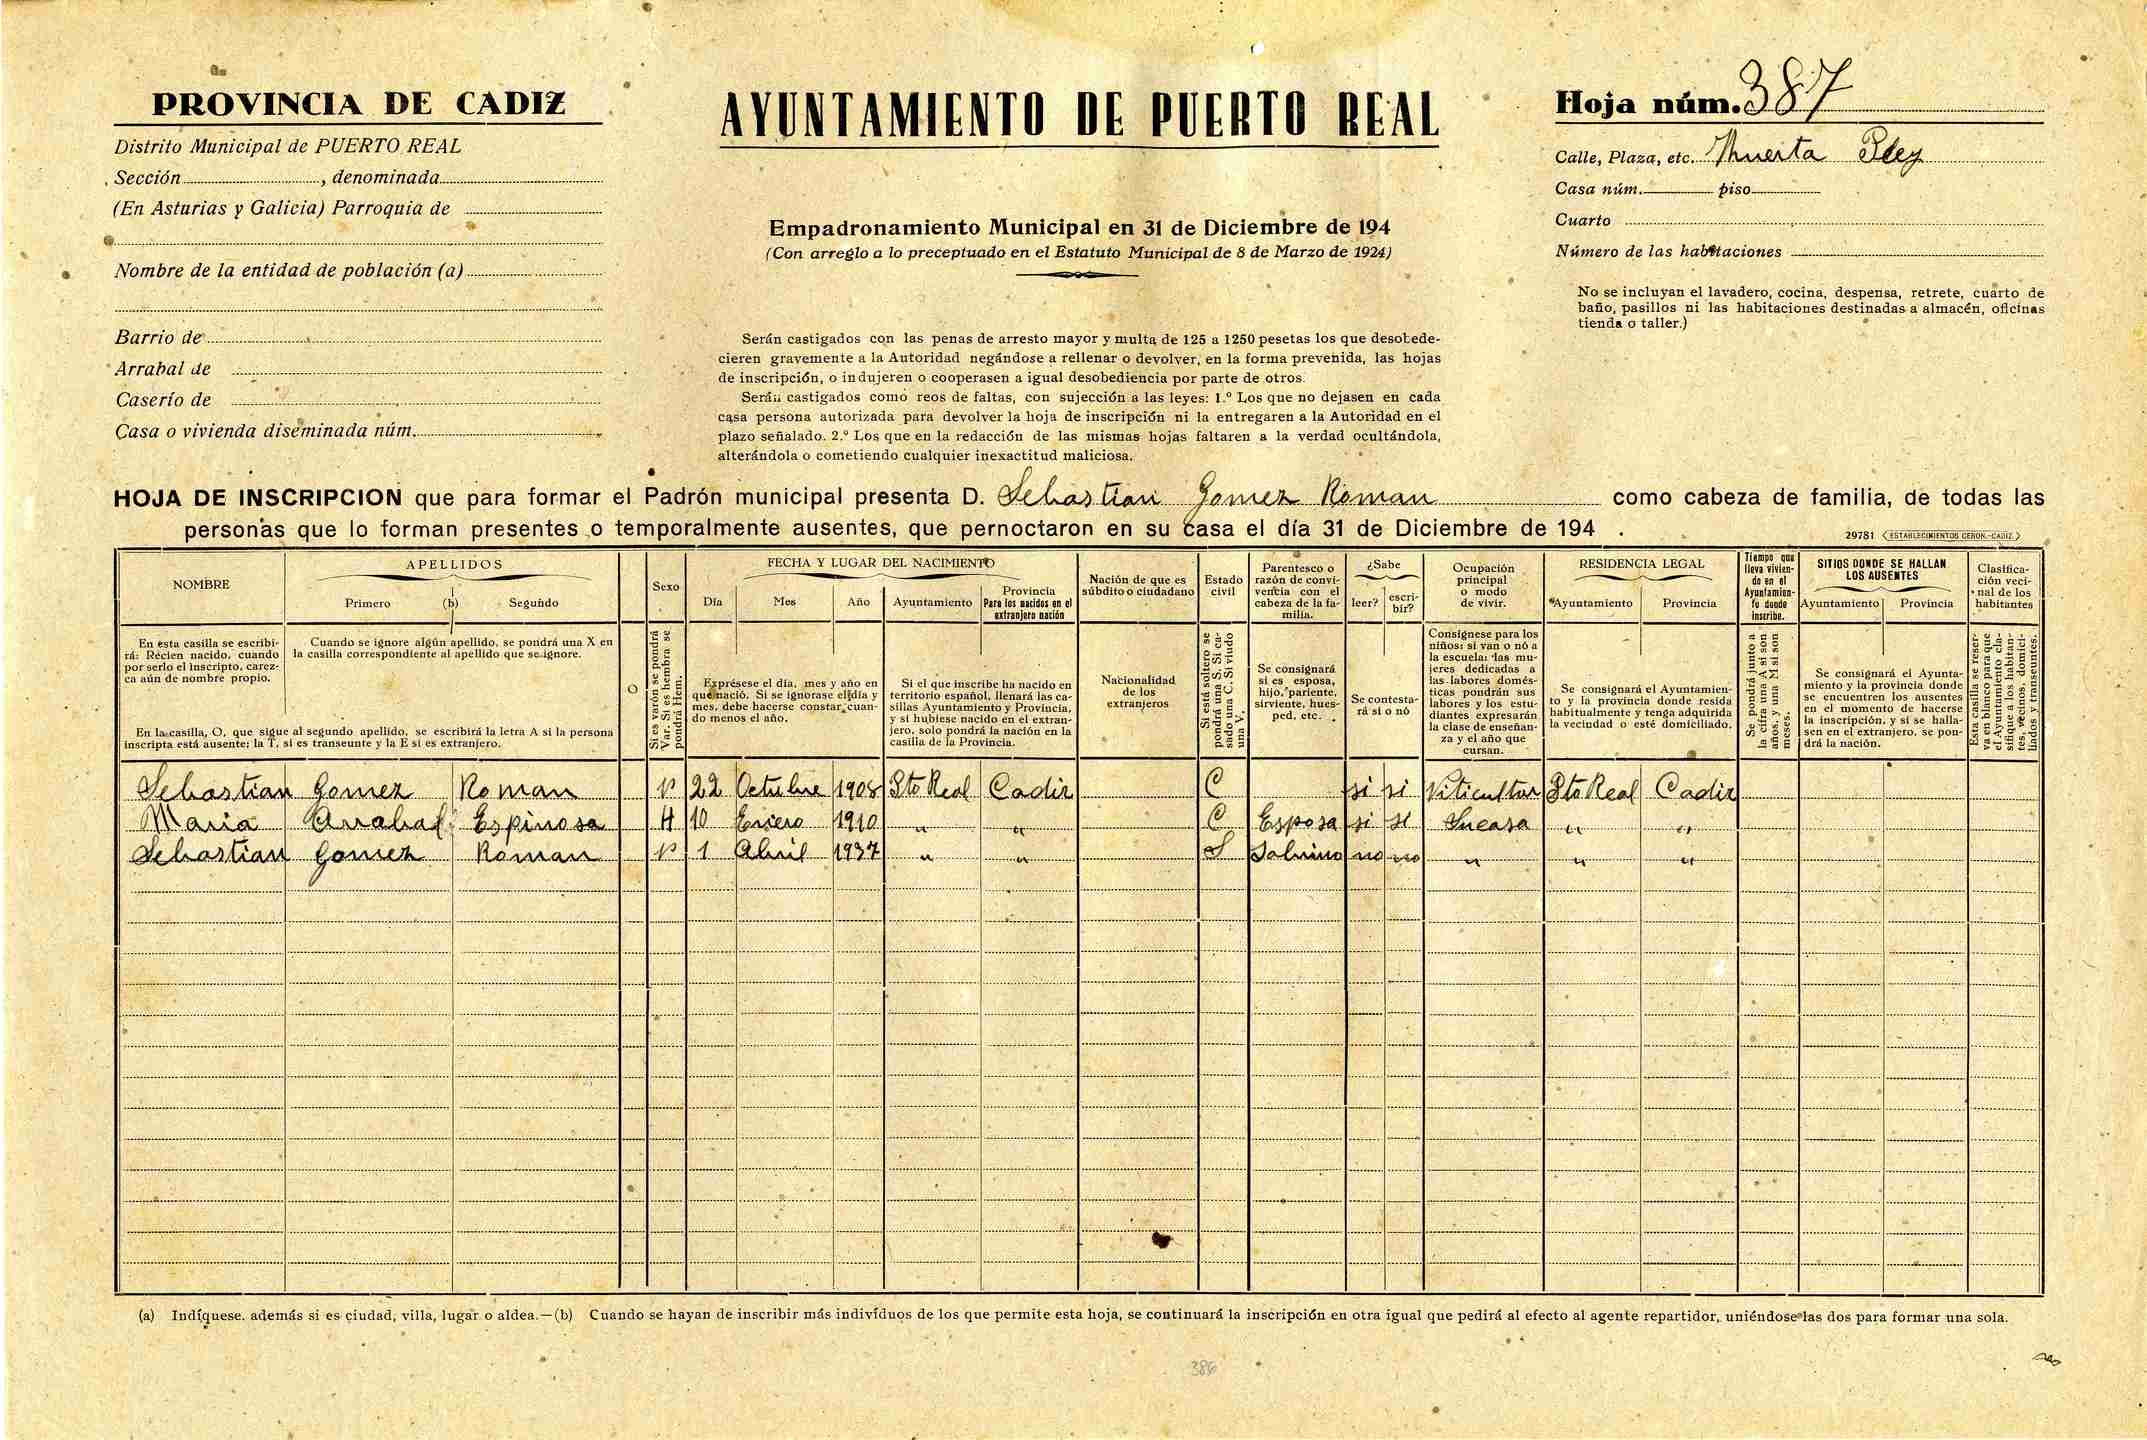 PROVINCIA DE CADIZ
Distrito Municipal de PUERTO REAL
Sección , denominada
(En Asturias y Galicia) Parroquia de
Nombre de la entidad de población (a)
Barrio de
Arrabal de
Caserío de
Casa o vivienda diseminada núm.
AYUNTAMIENTO DE PUERTO REAL
Empadronamiento Municipal en 31 de Diciembre de 194
(Con arreglo a lo preceptuado en el Estatuto Municipal de 8 de Marzo de 1924)
Serán castigados con las penas de arresto mayor y multa de 125 a 1250 pesetas los que desobede-
cieren gravemente a la Autoridad negándose a rellenar o devolver, en la forma prevenida, las hojas
de inscripción, o indujeren o cooperasen a igual desobediencia por parte de otros.
Serán castigados como reos de faltas, con sujección a las leyes: 1.º Los que no dejasen en cada
casa persona autorizada para devolver la hoja de inscripción ni la entregaren a la Autoridad en el
plazo señalado. 2.º Los que en la redacción de las mismas hojas faltaren a la verdad ocultándola,
alterándola o cometiendo cualquier inexactitud maliciosa.
Hoja núm. 387
Calle, Plaza, etc. Huerta
Casa núm. piso
Cuarto
Número de las habitaciones
No se incluyan el lavadero, cocina, despensa, retrete, cuarto de
baño, pasillos ni las habitaciones destinadas a almacén, oficinas
tienda o taller.)
HOJA DE INSCRIPCION que para formar el Padrón municipal presenta D. Sebastian Gomez Roman como cabeza de familia, de todas las
personas que lo forman presentes o temporalmente ausentes, que pernoctaron en su casa el día 31 de Diciembre de 194 .
29781 ESTABLECIMIENTOS CERON.-CADIZ
NOMBRE
APELLIDOS
Primero (b) Segundo
Sexo
FECHA Y LUGAR DEL NACIMIENTO
Día Mes Año Ayuntamiento
Provincia
Para los nacidos en el
extranjero nación
Nación de que es
súbdito o ciudadano
Estado
civil
Parentesco o
razón de convi-
vencia con el
cabeza de la fa-
milia.
¿Sabe
leer? escri-
bir?
Ocupación
principal
o modo
de vivir.
RESIDENCIA LEGAL
Ayuntamiento Provincia
Tiempo que
lleva vivien-
do en el
Ayuntamien-
to donde
inscribe.
SITIOS DONDE SE HALLAN
LOS AUSENTES
Ayuntamiento Provincia
Clasifica-
ción veci-
nal de los
habitantes
En esta casilla se escribi-
rá: Récien nacido, cuando
por serlo el inscripto, carez-
ca aún de nombre propio.
Cuando se ignore algún apellido, se pondrá una X en
la casilla correspondiente al apellido que se ignore.
En la casilla, O, que sigue al segundo apellido, se escribirá la letra A si la persona
inscripta está ausente; la T, si es transeunte y la E si es extranjero.
O
Si es varón se pondrá
Var. Si es hembra se
pondrá Hem.
Exprésese el día, mes y año en
que nació. Si se ignorase el día y
mes, debe hacerse constar cuan-
do menos el año.
Si el que inscribe ha nacido en
territorio español, llenará las ca-
sillas Ayuntamiento y Provincia,
y si hubiese nacido en el extran-
jero, solo pondrá la nación en la
casilla de la Provincia.
Nacionalidad
de los
extranjeros
Si está soltero se
pondrá una S. Si ca-
sado una C. Si viudo
una V.
Se consignará
si es esposa,
hijo, pariente,
sirviente, hues-
ped, etc.
Se contesta-
rá si o nó
Consígnese para los
niños: si van o nó a
la escuela; las mu-
jeres dedicadas a
las labores domés-
ticas pondrán sus
labores y los estu-
diantes expresarán
la clase de enseñan-
za y el año que
cursan.
Se consignará el Ayuntamien-
to y la provincia donde resida
habitualmente y tenga adquirida
la vecindad o esté domiciliado.
Se pondrá junto a
la cifra una A si son
años, y una M si son
meses.
Se consignará el Ayunta-
miento y la provincia donde
se encuentren los ausentes
en el momento de hacerse
la inscripción, y si se halla-
sen en el extranjero, se pon-
drá la nación.
Esta casilla se reser-
va en blanco para que
el Ayuntamiento cla-
sifique a los habitan-
tes, vecinos, domici-
liados y transeuntes.
Sebastian Gomez Roman V 22 Octubre 1908 Pto Real Cadiz C si si Viticultor Pto Real Cadiz
Maria Anabal Espinosa H 10 Enero 1910 " " C Esposa si si Su casa " "
Sebastian Gomez Roman V 1 Abril 1937 " " S Sobrino no no " " "
(a) Indíquese, además si es ciudad, villa, lugar o aldea.—(b) Cuando se hayan de inscribir más indivíduos de los que permite esta hoja, se continuará la inscripción en otra igual que pedirá al efecto al agente repartidor, uniéndose las dos para formar una sola.
386